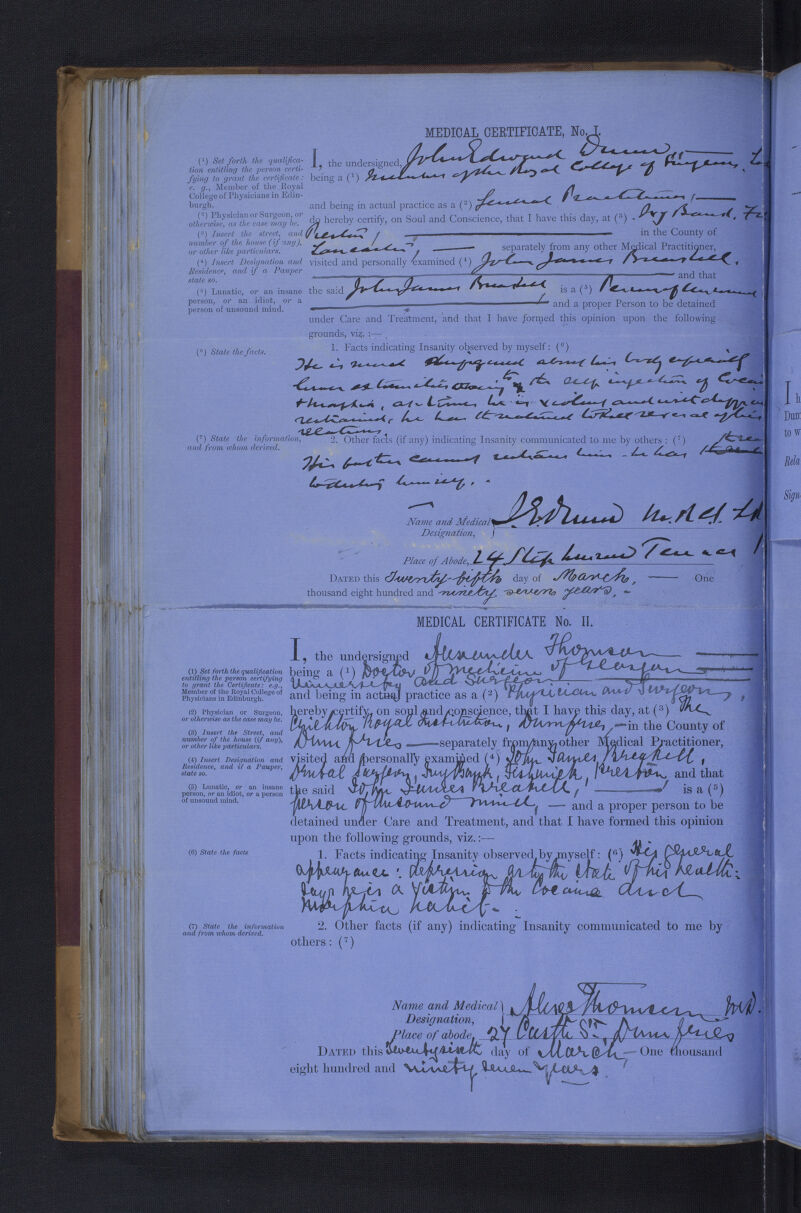 MEDICAL CERTIFICATE, No. I.
(¹) Set forth the qualifica-
tion entitling the person certi-
fying to grant the certificate:
e. g., Member of the Royal
College of Physicians in Edin-
burgh.
(²) Physician or Surgeon, or
otherwise, as the case may be.
(³) Insert the street, and
number of the house (if any),
or other like particulars.
(⁴) Insert Designation and
Residence, and if a Pauper
state so.
(⁵) Lunatic, or an insane
person, or an idiot, or a
person of unsound mind.
(⁶) State the facts.
(⁷) State the information,
and from whom derived.
I, the undersigned, John Edward Dunn
being a (¹) Member of the Royal College of Surgeons,
and being in actual practice as a (²) General Practitioner,
do hereby certify, on Soul and Conscience, that I have this day, at (³)
Preston, in the County of
Lancaster, separately from any other Medical Practitioner,
visited and personally examined (⁴) John James Breakell,
and that
the said John James Breakell is a (⁵) Person of Unsound
and a proper Person to be detained
under Care and Treatment, and that I have formed this opinion upon the following
grounds, viz. :—
1. Facts indicating Insanity observed by myself: (⁶)
He is much disfigured about his body especially
lower extremities owing to the self injection of
morphia, at times he is violent and
restrained, he has threatened to kill several of his
relations.
2. Other facts (if any) indicating Insanity communicated to me by others: (⁷)
His father cannot restrain him - he has
himself.
Name and Medical
Designation,
J. E. Dunn M.R.C.S.
Place of Abode, 24
DATED this Twenty-fifth day of March, — One
thousand eight hundred and ninety seven years. -
MEDICAL CERTIFICATE No. II.
(1) Set forth the qualification
entitling the person certifying
to grant the Certificate: e.g.,
Member of the Royal College of
Physicians in Edinburgh.
(2) Physician or Surgeon,
or otherwise as the case may be.
(3) Insert the Street, and
number of the house (if any),
or other like particulars.
(4) Insert Designation and
Residence, and if a Pauper,
state so.
(5) Lunatic, or an insane
person, or an idiot, or a person
of unsound mind.
(6) State the facts
(7) State the information
and from whom derived.
I, the undersigned Alexander Thomson
being a (¹) Doctor of Medicine of Glasgow
University and Surgeon
and being in actual practice as a (²) Physician and Surgeon,
hereby certify, on soul and conscience, that I have this day, at (³) The
Crichton Royal Institution, Dumfries, — in the County of
Dumfries — separately from any other Medical Practitioner,
visited and personally examined (⁴) John James Breakell,
Dental Surgeon, Ivy Bank, Fishwick, Preston, and that
the said John James Breakell, is a (⁵)
person of unsound mind, — and a proper person to be
detained under Care and Treatment, and that I have formed this opinion
upon the following grounds, viz.:—
1. Facts indicating Insanity observed by myself: (⁶) His general
appearance: depression as to the state of his health:
says he is a victim to the Cocaine and
morphia habit.
2. Other facts (if any) indicating Insanity communicated to me by
others: (⁷)
Name and Medical
Designation,
Alexr Thomson M.D.
Place of abode, 27 Castle St., Dumfries
DATED this Twenty sixth day of March — One thousand
eight hundred and ninety seven years.
I h
Dum
to w
Rela
Sign